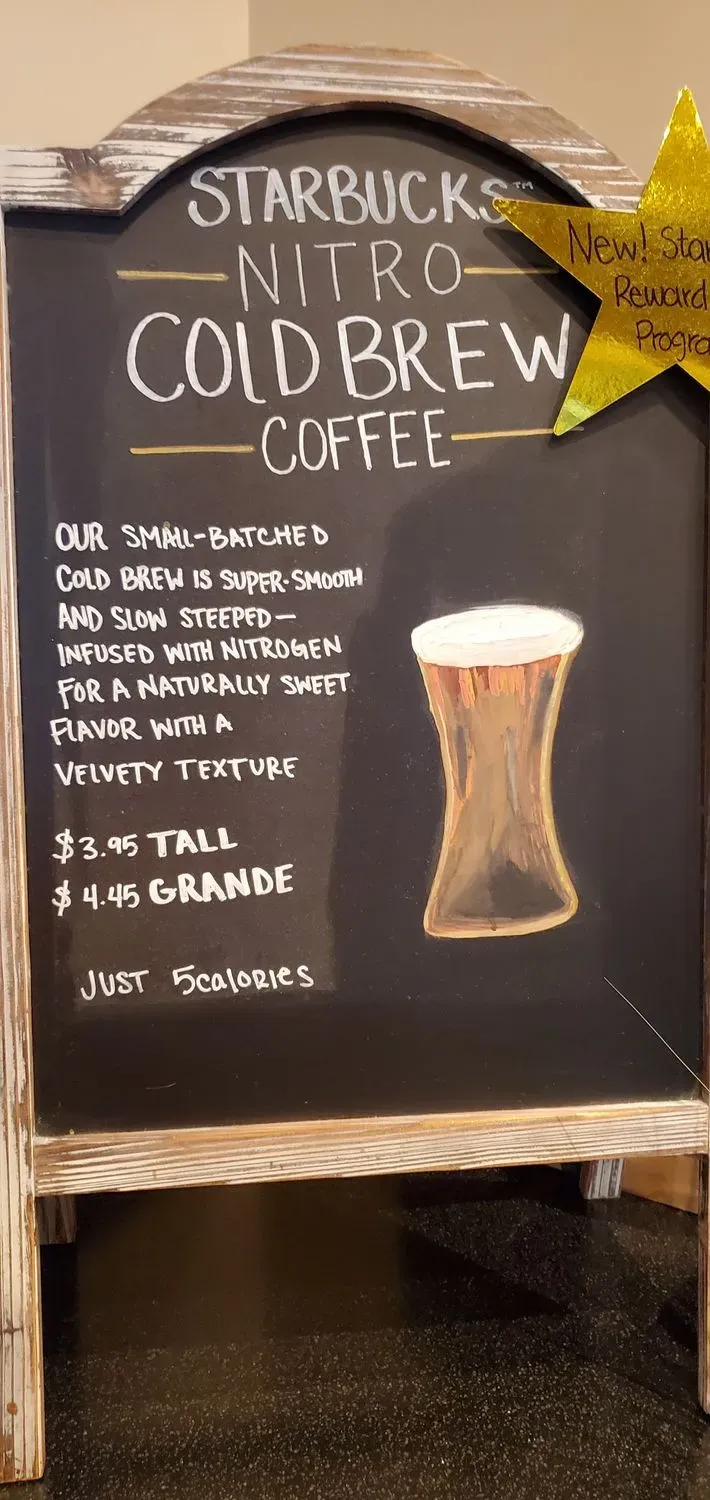 STARBUCKS™
NITRO
COLD BREW
COFFEE
New! Star
Reward
Progra
OUR SMALL-BATCHED
COLD BREW IS SUPER-SMOOTH
AND SLOW STEEPED—
INFUSED WITH NITROGEN
FOR A NATURALLY SWEET
FLAVOR WITH A
VELVETY TEXTURE
$3.95 TALL
$4.45 GRANDE
JUST 5calories